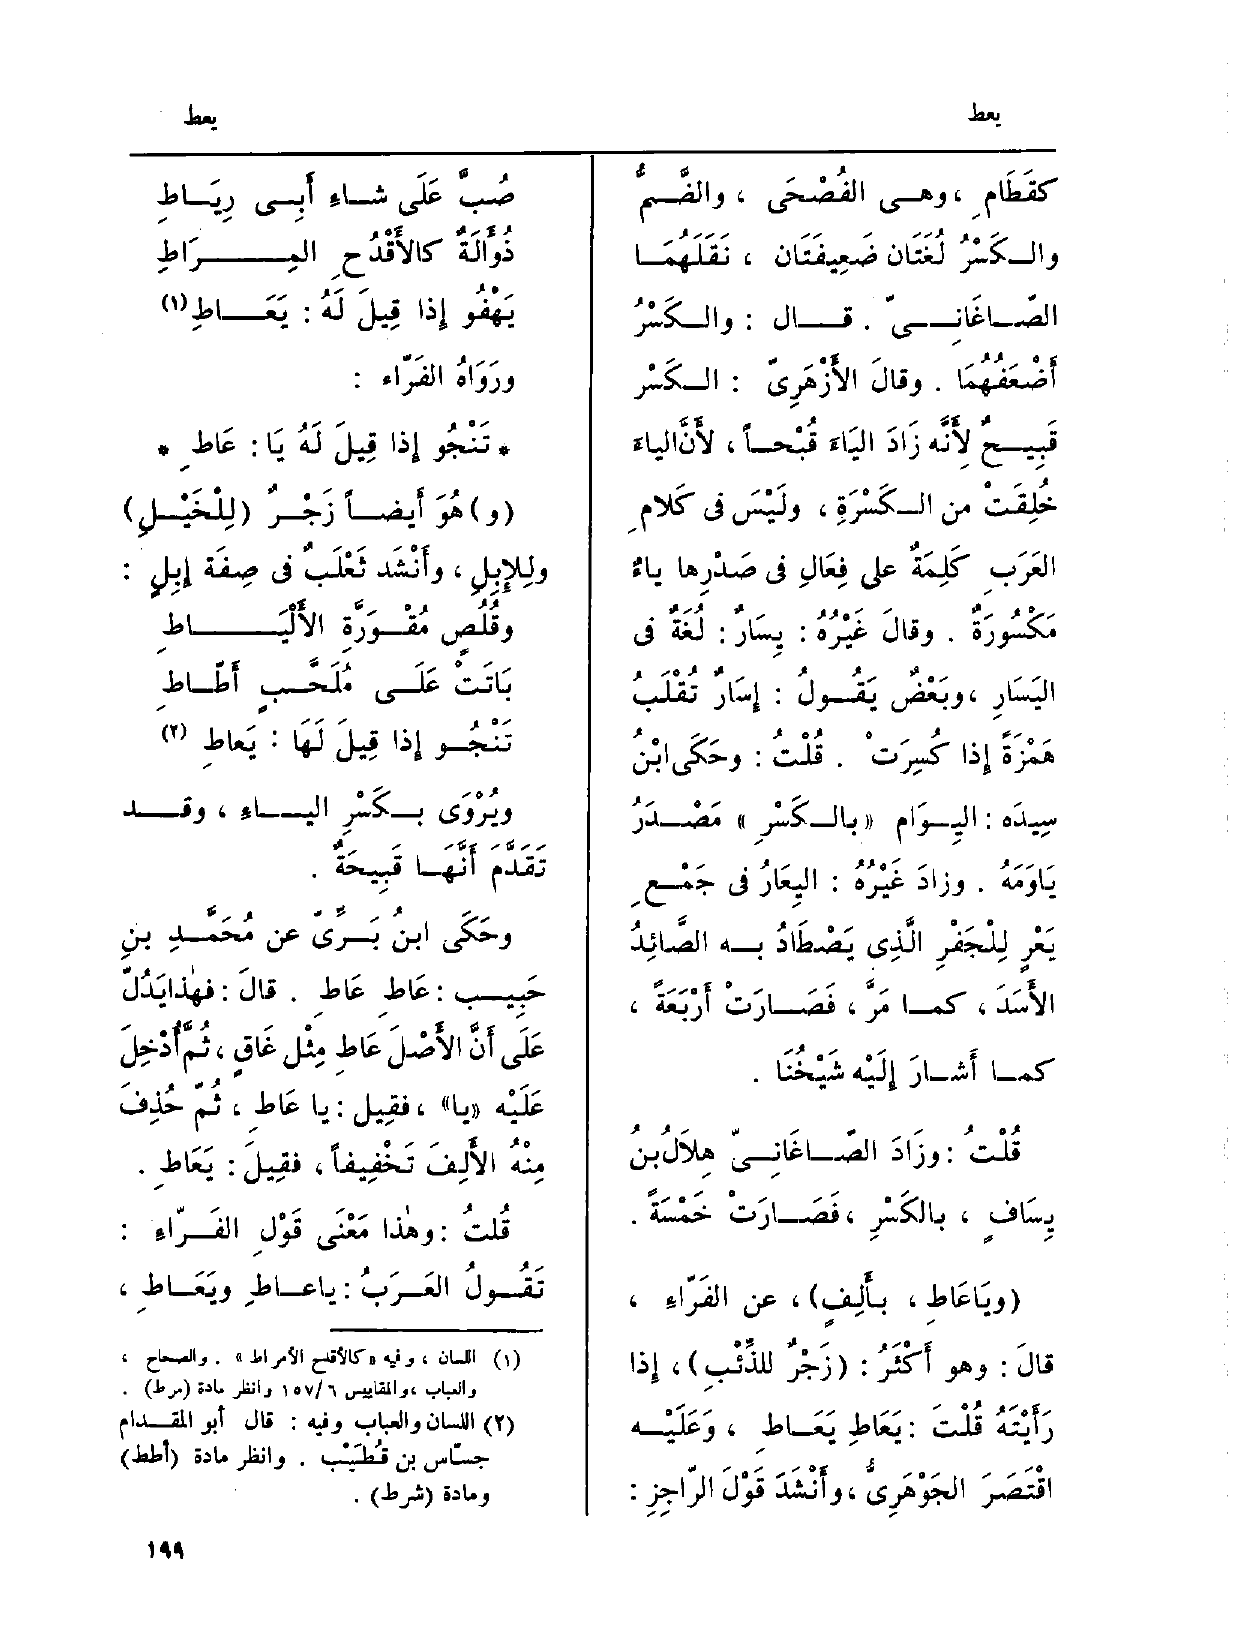 يعط
يعط
كقَطَامِ ، وهــى الفُصْحَى ، والضَّــمُّ
والــكَسْرُ لُغَتَان ضَعِيفَتَان ، نَقَلَهُمَــا
الصّــاغَانِــىّ . قــال : والــكَسْرُ
أَضْعَفُهُمَا . وقالَ الأَزْهَرِىّ : الــكَسْر
قَبِيــحٌ لِأَنَّه زَادَ اليَاءَ قُبْحــاً ، لأَنَّ الياءَ
خُلِقَتْ من الــكَسْرَةِ ، ولَيْسَ فى كَلامِ
العَرَبِ كَلِمَةٌ على فِعَالٍ فى صَدْرِها ياءٌ
مَكْسُورَةٌ . وقالَ غَيْرُهُ : يِسَارٌ : لُغَةٌ فى
اليَسَارِ ، وبَعْضٌ يَقُــولُ : إِسَارٌ تُقْلَبُ
هَمْزَةً إذا كُسِرَتْ . قُلْتُ : وحَكَى ابْنُ
سِيدَه : اليِــوَام «بالــكَسْرِ» مَصْــدَرُ
يَاوَمَهُ . وزادَ غَيْرُهُ : اليِعَارُ فى جَمْعِ
يَعْرٍ لِلْجَفْرِ الَّذِى يَصْطَادُ بــه الصَّائِدُ
الأَسَدَ ، كمــا مَرَّ ، فَصَــارَتْ أَرْبَعَةً ،
كمــا أَشــارَ إِلَيْه شَيْخُنَا .
قُلْتُ : وزَادَ الصّــاغَانِــىّ هِلالُ بن
يِسَافٍ ، بالكَسْرِ ، فَصَــارَتْ خَمْسَةً .
(ويَاعَاطِ ، بأَلِفٍ) ، عن الفَرّاءِ ،
قالَ : وهو أَكْثَرُ : (زَجْرٌ للذِّئْبِ) ، إذا
رَأَيْتَهُ قُلْتَ : يَعَاطِ يَعَــاطِ ، وَعَلَيْــه
اقْتَصَرَ الجَوْهَرِىُّ ، وأَنْشَدَ قَوْلَ الرّاجِزِ :
صُبَّ عَلَى شــاءِ أَبِــى رِيَــاطِ
ذُؤَالَةٌ كالأَقْدُحِ المِــــرَاطِ
يَهْفُو إذا قِيلَ لَهُ : يَعَــاطِ (١)
ورَوَاهُ الفَرّاء :
* تَنْجُو إذا قِيلَ لَهُ يَا : عَاطِ *
(و) هُوَ أَيضــاً زَجْــرٌ (لِلْخَيْــلِ)
ولِلإِبِلِ ، وأَنْشَد ثَعْلَبٌ فى صِفَة إِبِلٍ :
وقُلُصٍ مُقْــوَرَّةِ الأَلْيَــــاطِ
بَاتَتْ عَلَــى مُلَحَّــبٍ أَطّــاطِ
تَنْجُــو إذا قِيلَ لَهَا : يَعاطِ (٢)
ويُرْوَى بــكَسْرِ اليــاءِ ، وقــد
تَقَدَّمَ أَنَّهَــا قَبِيحَةٌ .
وحَكَى ابنُ بَــرِّىّ عن مُحَمَّــدِ بنِ
حَبِيــبٍ : عَاطِ عَاطِ . قالَ : فهٰذا يَدُلّ
عَلَى أَنَّ الأَصْلَ عَاطِ مِثْل غَاقٍ ، ثُمَّ أُدْخِلَ
عَلَيْه «يا» ، فقِيل : يا عَاطِ ، ثُمّ حُذِفَ
مِنْهُ الأَلِفَ تَخْفِيفاً ، فقِيلَ : يَعَاطِ .
قُلتُ : وهٰذا مَعْنَى قَوْلِ الفَــرّاءِ :
تَقُــولُ العَــرَبُ : ياعــاطِ ويَعَــاطِ ،
(١) اللسان ، وفيه «كالأقدح الأمراط» . والصحاح ،
والعباب ، والمقاييس ٦/ ١٥٧ وانظر مادة (مرط) .
(٢) اللسان والعباب وفيه : قال أبو المقــدام
جسّاس بن قُطَيْب . وانظر مادة (أطط)
ومادة (شرط) .
١٩٩